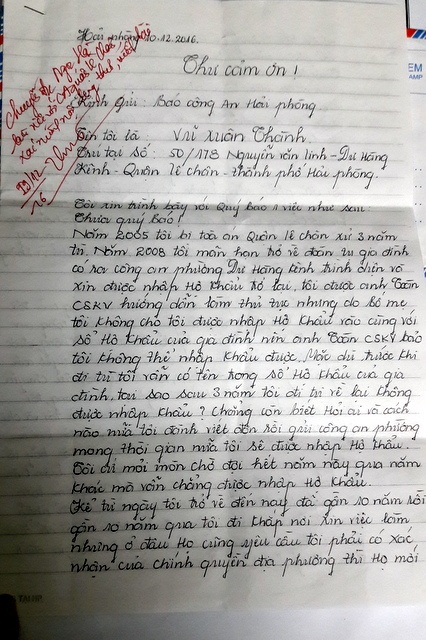 Hải phòng 10.12.2016.
Thư cảm ơn!
Kính Gửi: Báo công An Hải phòng
Tên tôi là: Vũ Xuân Thành
Trú tại số: 50/178 Nguyễn Văn Linh - Dư Hàng
Kênh - Quận lê chân - thành phố Hải phòng.
Tôi xin trình bày với Quý Báo 1 việc như sau
Thưa quý Báo!
Năm 2005 tôi bị toà án Quận lê chân xử 3 năm
tù. Năm 2008 tôi mãn hạn trở về đoàn tụ gia đình
có ra công an phường Dư Hàng Kênh trình diện và
xin được nhập Hộ Khẩu trở lại. tôi được anh Toàn
CSKV hướng dẫn làm thủ tục nhưng do Bố mẹ
tôi không cho tôi được nhập Hộ Khẩu vào cùng với
sổ Hộ Khẩu của gia đình nên anh Toàn CSKV bảo
tôi không thể nhập Khẩu được. Mặc dù trước khi
đi tù tôi vẫn có tên trong sổ Hộ Khẩu của gia
đình. tại sao sau 3 năm tôi đi tù về lại không
được nhập khẩu? Chẳng còn biết Hỏi ai và cách
nào nữa tôi đành viết đơn rồi gửi công an phường
mong thời gian nữa tôi sẽ được nhập Hộ Khẩu.
Tôi cứ mỏi mòn chờ đợi hết năm này qua năm
khác mà vẫn chẳng được nhập Hộ Khẩu.
Kể từ ngày tôi trở về đến nay đã gần 10 năm rồi
gần 10 năm qua tôi đi khắp nơi xin việc làm
nhưng ở đâu Họ cũng yêu cầu tôi phải có xác
nhận của chính quyền địa phương thì Họ mới
Chuyển
12/12
16
EM
AMP